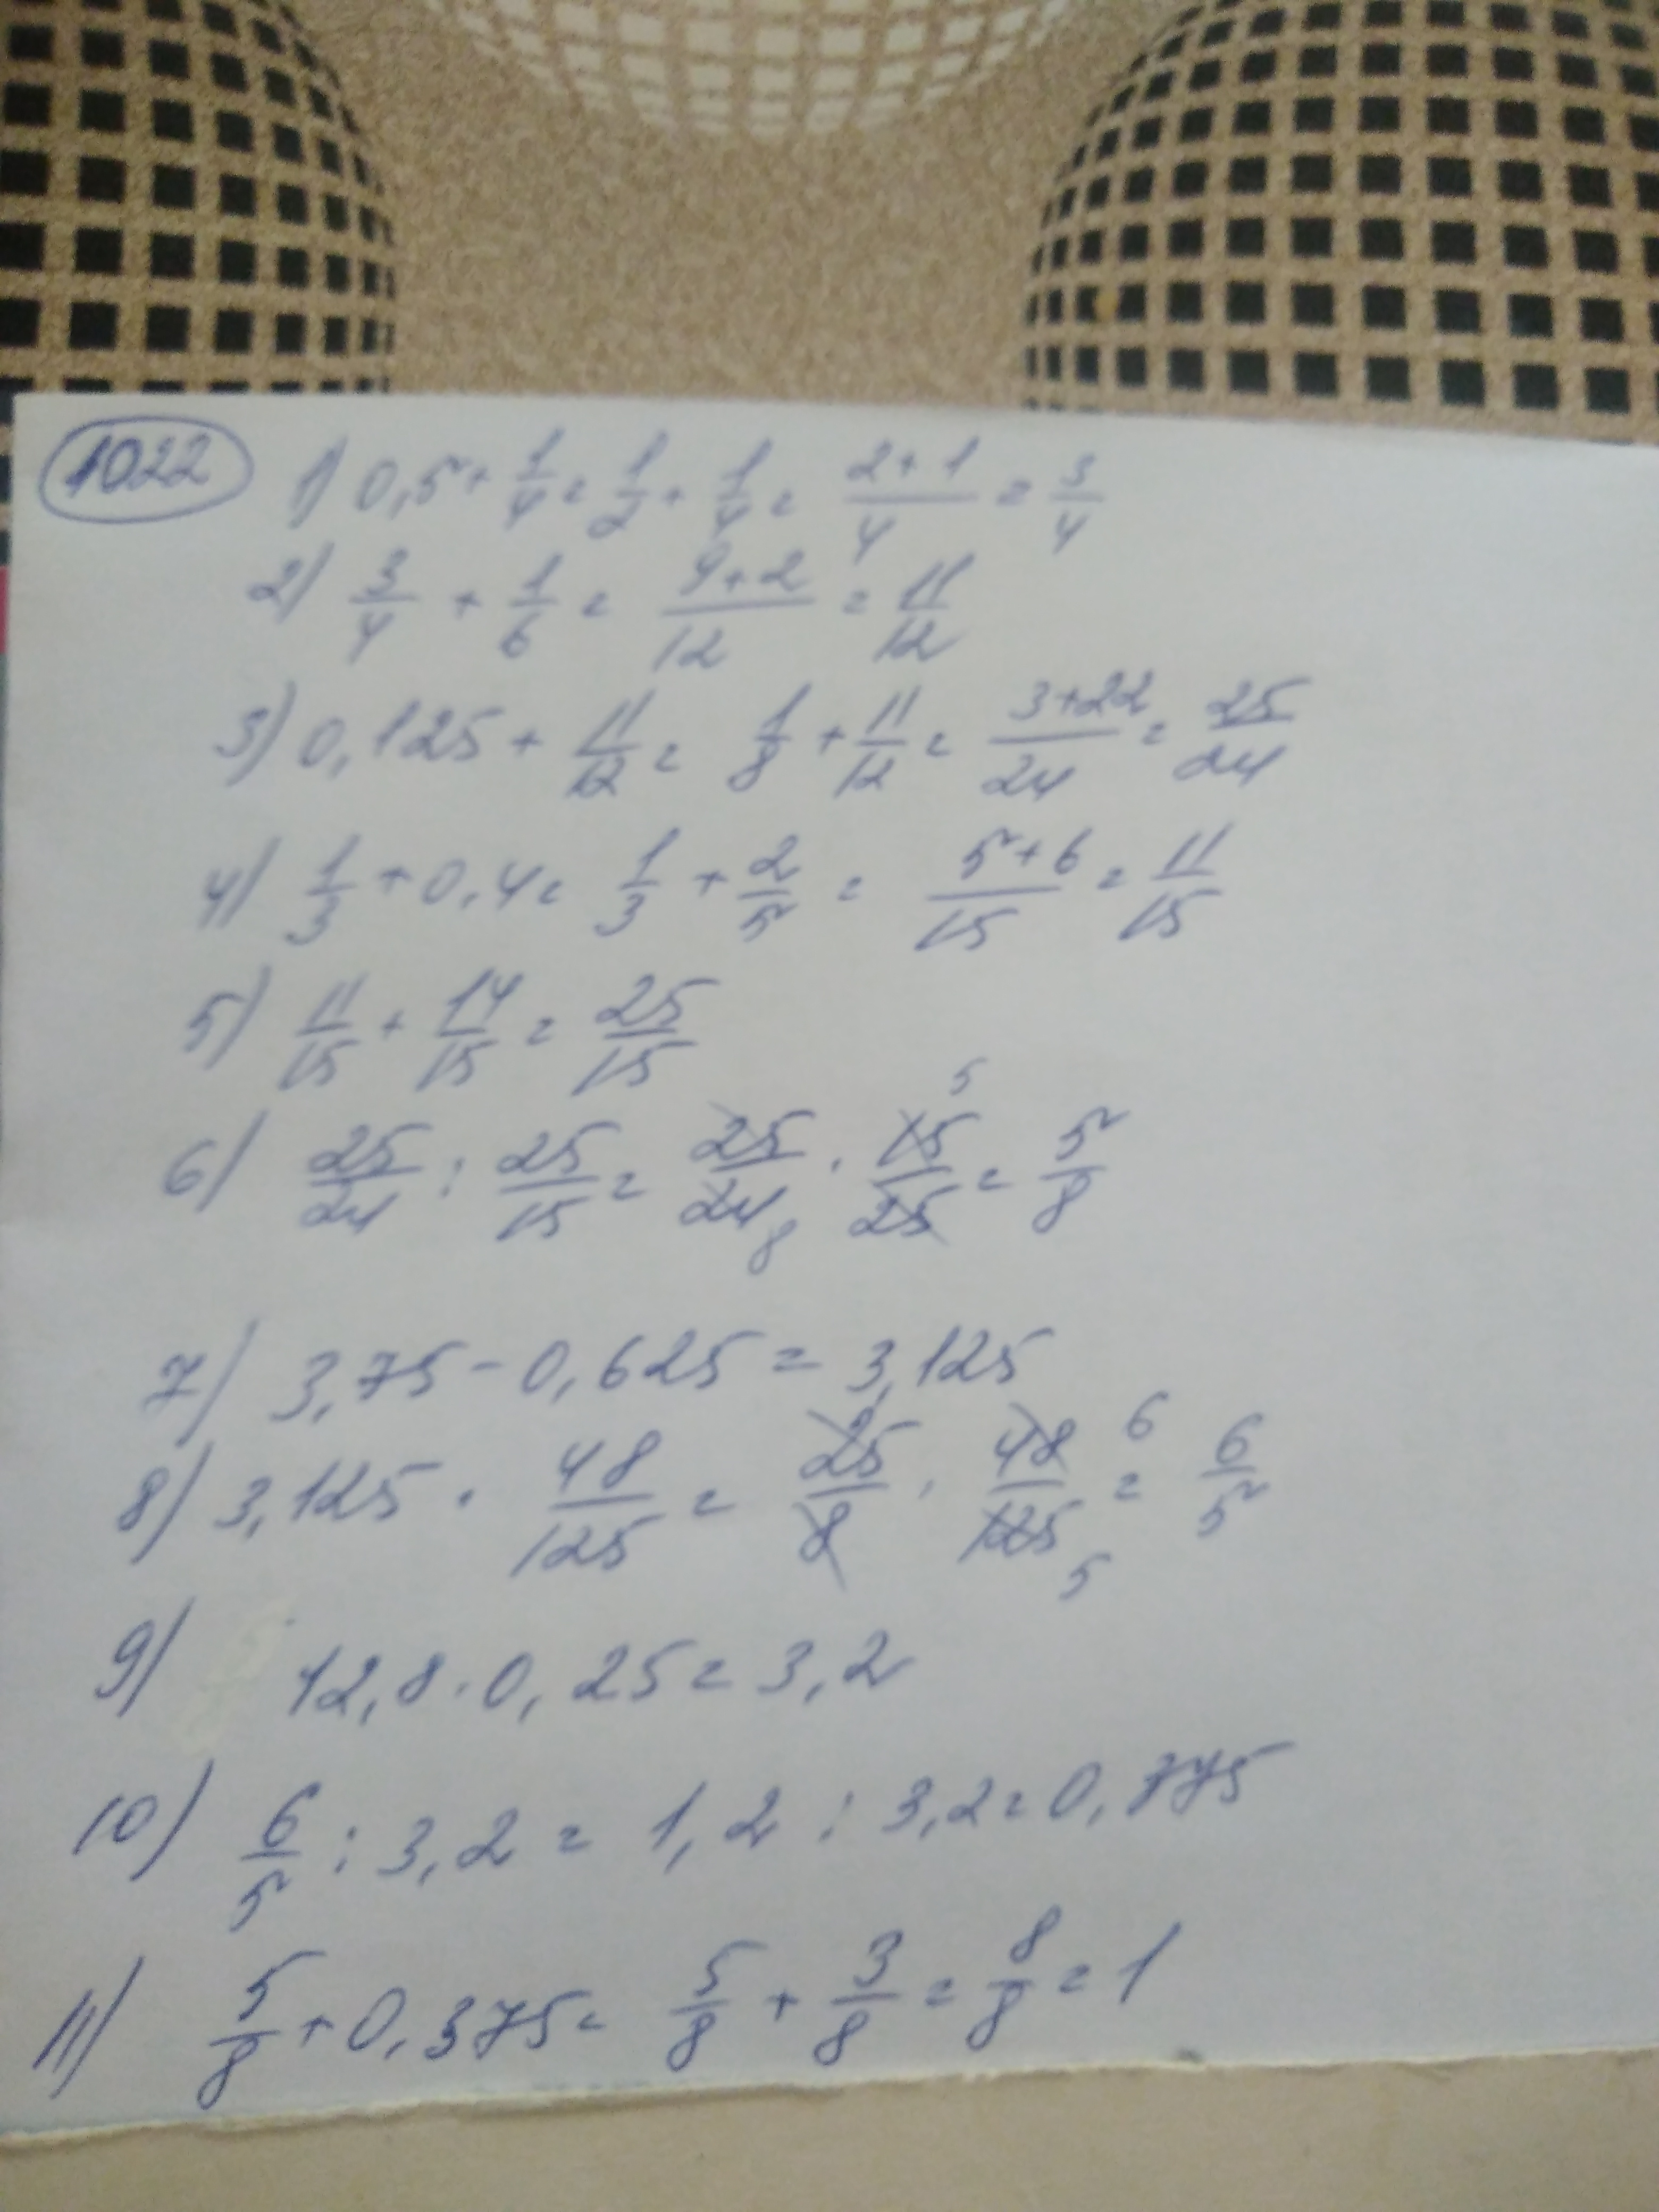 1022 1) 0,5 + 1/4 = 1/2 + 1/4 = (2+1)/4 = 3/4
2) 3/4 + 1/6 = (9+2)/12 = 11/12
3) 0,125 + 11/12 = 1/8 + 11/12 = (3+22)/24 = 25/24
4) 1/3 + 0,4 = 1/3 + 2/5 = (5+6)/15 = 11/15
5) 11/15 + 14/15 = 25/15
6) 25/24 : 25/15 = 25/24 8 · 15/25 5 = 5/8
7) 3,75 - 0,625 = 3,125
8) 3,125 · 48/125 = 25/8 · 48/125 6 5 = 6/5
9) 12,8 · 0,25 = 3,2
10) 6/5 : 3,2 = 1,2 : 3,2 = 0,375
11) 5/8 + 0,375 = 5/8 + 3/8 = 8/8 = 1